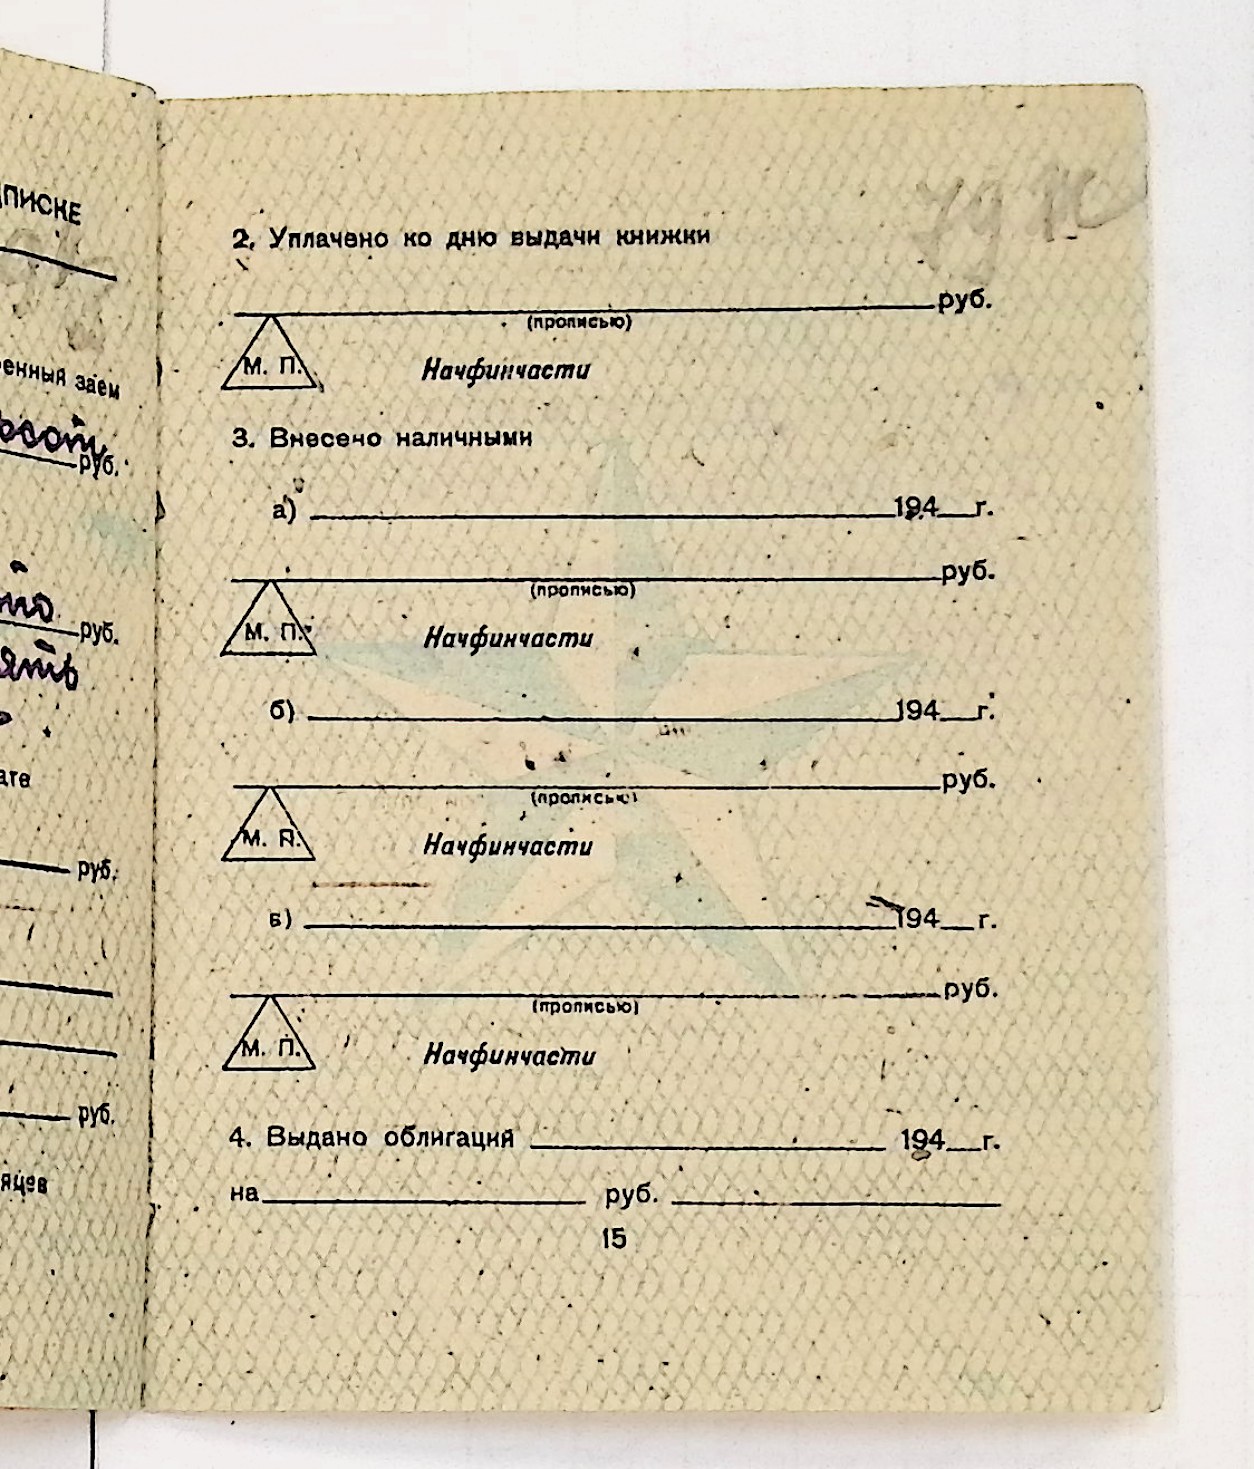 ПИСКЕ
енный заем
руб.
руб.
ять
руб.
руб.
яцев
2. Уплачено ко дню выдачи книжки
руб.
(прописью)
М. П.
Начфинчасти
3. Внесено наличными
а) 194 г.
руб.
(прописью)
М. П.
Начфинчасти
б) 194 г.
руб.
(прописью)
М. П.
Начфинчасти
в) 194 г.
руб.
(прописью)
М. П.
Начфинчасти
4. Выдано облигаций 194 г.
на руб.
15